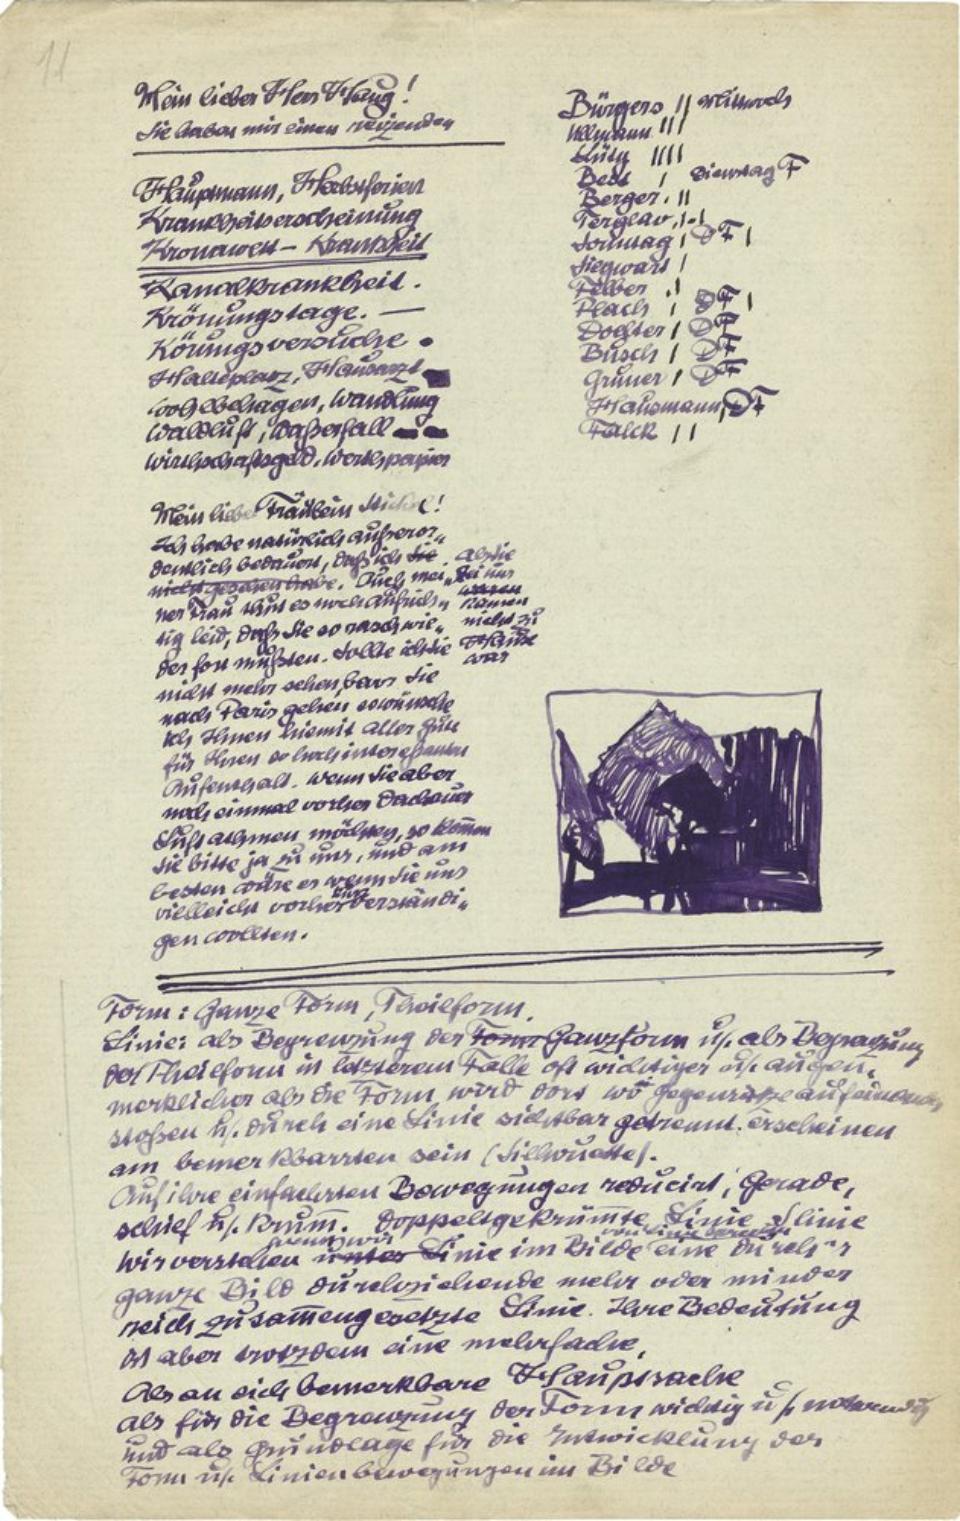 11
Mein lieber Herr Haug!
Sie haben mir einen reizenden
Hauptmann, Herbstferien
Krankheitserscheinung
Kronawett – Krankheit
Kanalkrankheit.
Krönungstage. —
Körungsversuche
Halteplatz, Hausarzt
Wohlbehagen, Wandlung
Waldluft, Waßerfall
Wirthschaftsgeld, Werthpapier
Bürgers || Mittwoch
Ullmann |||
Schütz ||||
Betz | Dienstag F
Berger. ||
Sonntag | DF |
Siegwart |
Felber . |
Plach | DF |
Dochter | DF
Busch | DF
Gruner | DF
Hausmann, DF
Falck | |
Mein liebes Fräulein Stickel!
Ich habe natürlich außeror-
dentlich bedauert, daß ich sie
nicht gesehen habe. Auch mei-
ner Frau thut es noch aufrich-
tig leid, daß Sie so rasch wie-
der fort mußten. Sollte ich Sie
nicht mehr sehen, bevor Sie
nach Paris gehen so wünsche
ich Ihnen hiemit alles Gute
für Ihren so hochinteressanten
Aufenthalt. Wenn Sie aber
noch einmal vorher Dachauer
Luft athmen möchten, so kommen
Sie bitte ja zu uns, und am
besten wäre es wenn Sie uns
vielleicht vorher kurz verständi-
gen wollten.
als Sie
bei uns
waren
kamen
nicht zu
Hause
war
Form: Ganze Form, Theilform.
Linie: als Begrenzung der Form Ganzform u. als Begrenzung
der Theilform in letzterem Falle oft wichtiger u. augen-
merklicher als die Form, wird dort wo Gegensätze aufeinander
stoßen u. durch eine Linie sichtbar getrennt erscheinen
am bemerkbarsten sein (Silhouette).
Auf ihre einfachsten Bewegungen reducirt, Gerade,
schief u. krumm. Doppeltgekrümmte Linie Slinie
wenn wir von Linie sprechen
Wir verstehen unter Linie im Bilde eine durch's
ganze Bild durchziehende mehr oder minder
reich zusammengesetzte Linie. Ihre Bedeutung
ist aber trotzdem eine mehrfache,
Als an sich bemerkbare Hauptsache
als für die Begrenzung der Form wichtig u. nothwendig
und als Grundlage für die Entwicklung der
Form u. Linienbewegungen im Bilde